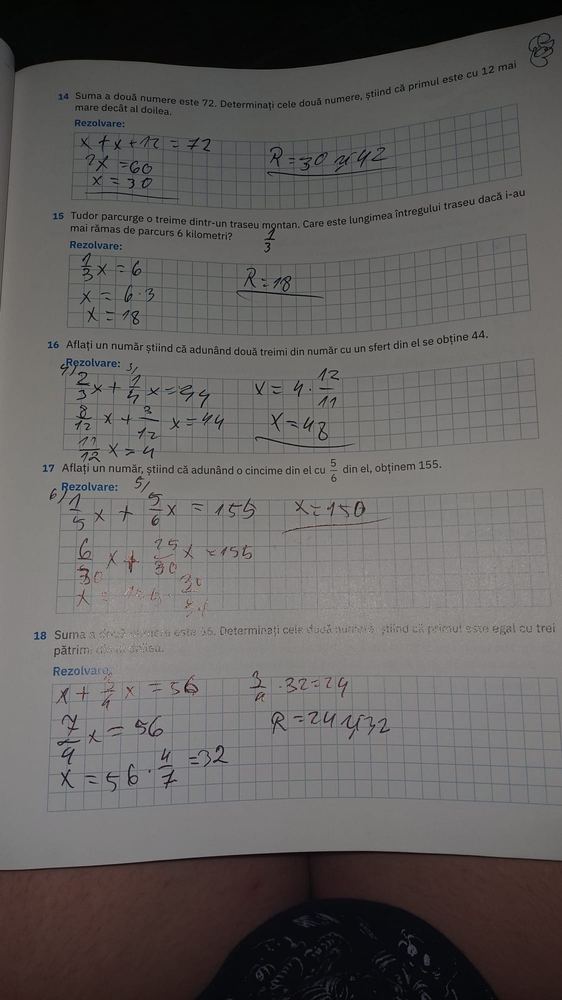 14 Suma a două numere este 72. Determinați cele două numere, știind că primul este cu 12 mai
mare decât al doilea.
Rezolvare:
x + x + 12 = 72
2x = 60
x = 30
R = 30 și 42
15 Tudor parcurge o treime dintr-un traseu montan. Care este lungimea întregului traseu dacă i-au
mai rămas de parcurs 6 kilometri?
1/3
Rezolvare:
1/3 x = 6
x = 6 · 3
x = 18
R = 18
16 Aflați un număr știind că adunând două treimi din număr cu un sfert din el se obține 44.
Rezolvare:
4) 2/3 x + 3) 1/4 x = 44
8/12 x + 3/12 x = 44
11/12 x = 4
x = 4 · 12/11
x = 48
17 Aflați un număr, știind că adunând o cincime din el cu 5/6 din el, obținem 155.
Rezolvare:
6) 1/5 x + 5) 5/6 x = 155
6/30 x + 25/30 x = 155
x =
x = 150
18 Suma a două numere este 56. Determinați cele două numere, știind că primul este egal cu trei
pătrimi
Rezolvare:
x + 3/4 x = 56
7/4 x = 56
x = 56 · 4/7 = 32
3/4 · 32 = 24
R = 24 și 32